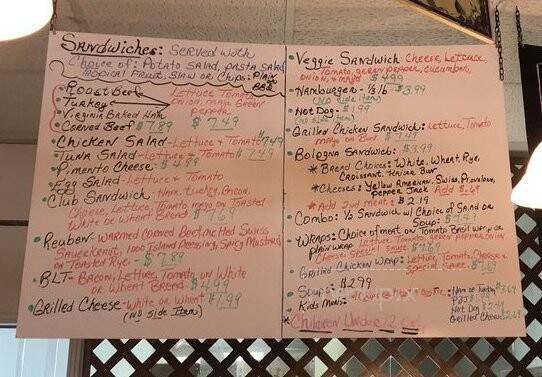 Sandwiches: Served with
Choice of: Potato Salad, pasta Salad
Tropical Fruit, Slaw or Chips: Plain or BBQ
Roast Beef
Turkey
Virginia Baked Ham
Corned Beef $7.89
Lettuce Tomato
onion, mayo Green
Pepper
$7.49
Chicken Salad - Lettuce & Tomato $7.49
Tuna Salad - Lettuce & Tomato $7.49
Pimento Cheese
Egg Salad - Lettuce & Tomato
Club Sandwich - Ham, turkey, Bacon,
Cheese, Lettuce, Tomato mayo on Toasted
White or Wheat Bread $7.69
Reuben - warmed Corned Beef, melted Swiss
Sauerkraut, 1000 Island Dressing, Spicy Mustard
on Toasted Rye - $7.89
BLT - Bacon, Lettuce, Tomato, on White
or Wheat Bread $4.99
Grilled Cheese - White or Wheat $1.99
(No side Item)
Veggie Sandwich: Cheese, Lettuce
Tomato, green pepper, cucumber,
onion, & mayo $4.99
Hamburger - 1/3 lb $3.99
(No side item)
Hot Dog - $1.99
(No side item)
Grilled Chicken Sandwich: Lettuce, Tomato
mayo on Bun $7.49
Bologna Sandwich: $3.99
* Bread Choices: White, Wheat, Rye,
Croissant, Kaiser Bun
* Cheeses: Yellow American, Swiss, Provolone,
Pepper Jack Add $.69
* Add 2nd meat: $2.19
Combo: 1/2 Sandwich w/ Choice of Salad or
Soup: $7.49
Wraps: Choice of meat on Tomato Basil wrap or
plain wrap Lettuce Tomato, green pepper, onion
Cheese special sauce $7.69
Grilled Chicken Wrap: Lettuce, Tomato, Cheese &
Special sauce $7.69
Soups $2.99
Kids Meals:
Ham or Turkey $3.69
PB&J $1.99
Hot Dog $2.49
Grilled Cheese $2.69
* Children Under 12